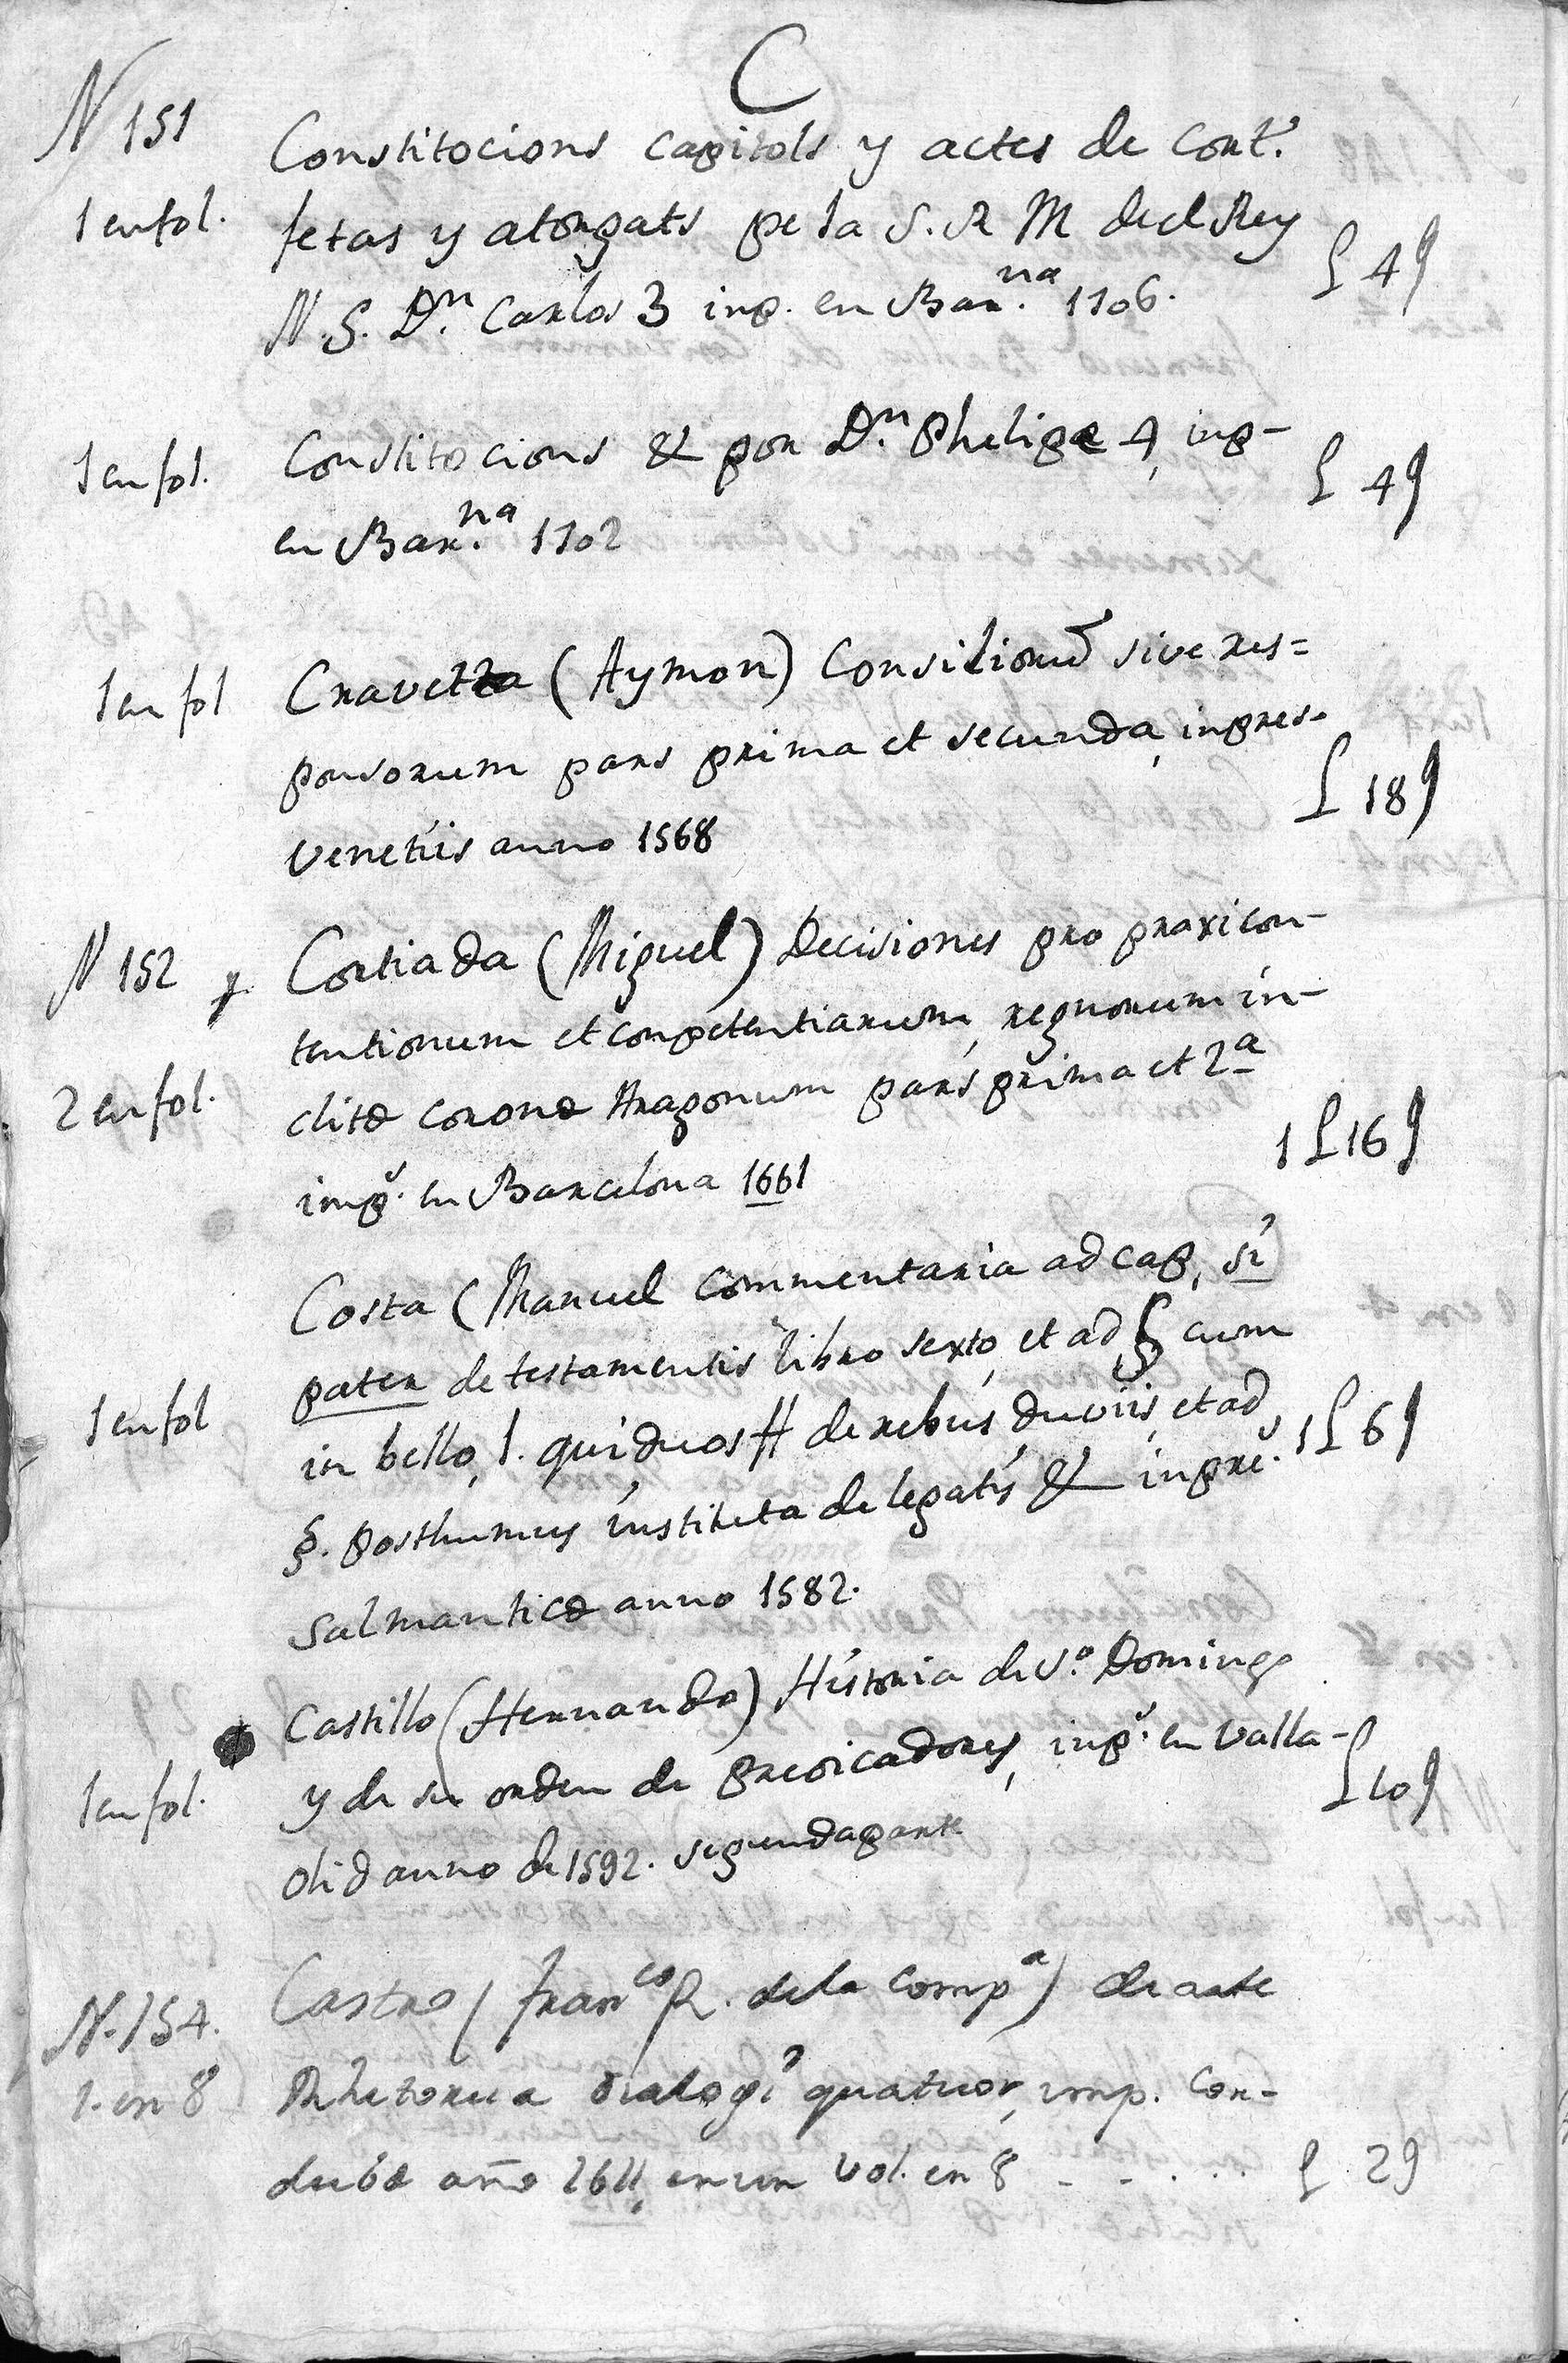 C
N 151
Constitocions capitols y actes de Cort.ˢ
1 en fol.
fetas y atorgats pe la S. R M del Rey
£ 4 ʃ
N. S. D.ⁿ Carlos 3 inp. en Bar.ⁿᵃ 1706.
Constitocions & por D.ⁿ Phelipe 4, inp-
1 en fol.
£ 4 ʃ
en Bar.ⁿᵃ 1702
Cravetta (Aymon) Consilioru͂ sive res=
1 en fol
ponsorum pars prima et secunda, inpres-
£ 18 ʃ
venetiis anno 1568
N 152 y
Cortiada (Miguel) Decisiones pro praxi con-
tentionum et conpetentiarum, regnorum in-
2 en fol.
clite corone Aragonum pars prima et 2ª
1 £ 16 ʃ
imp.ˢ en Barcelona 1661
Costa (Manuel Commentaria ad cap, si
pater de testamentis libro sexto, et ad § cum
1 en fol
in bello, l. qui duos ff de rebus duviis, et ad
1 £ 6 ʃ
§. posthumus instituta de legatis & inpre.ˢ
Salmantice anno 1582.
Castillo (Hernando) Historia de S.º Domingo
1 en fol.
y de su orden de predicadores, inp.ˢ en Valla-
£ 10 ʃ
olid anno de 1592. segunda parte
Castro (Franᶜᵒ P. de la Compª) de arte
N. 154.
1. en 8
Rhetorica dialogi quatuor, imp. Cor-
dube año 1611, en un vol. en 8 - - . . .
£ 2 ʃ